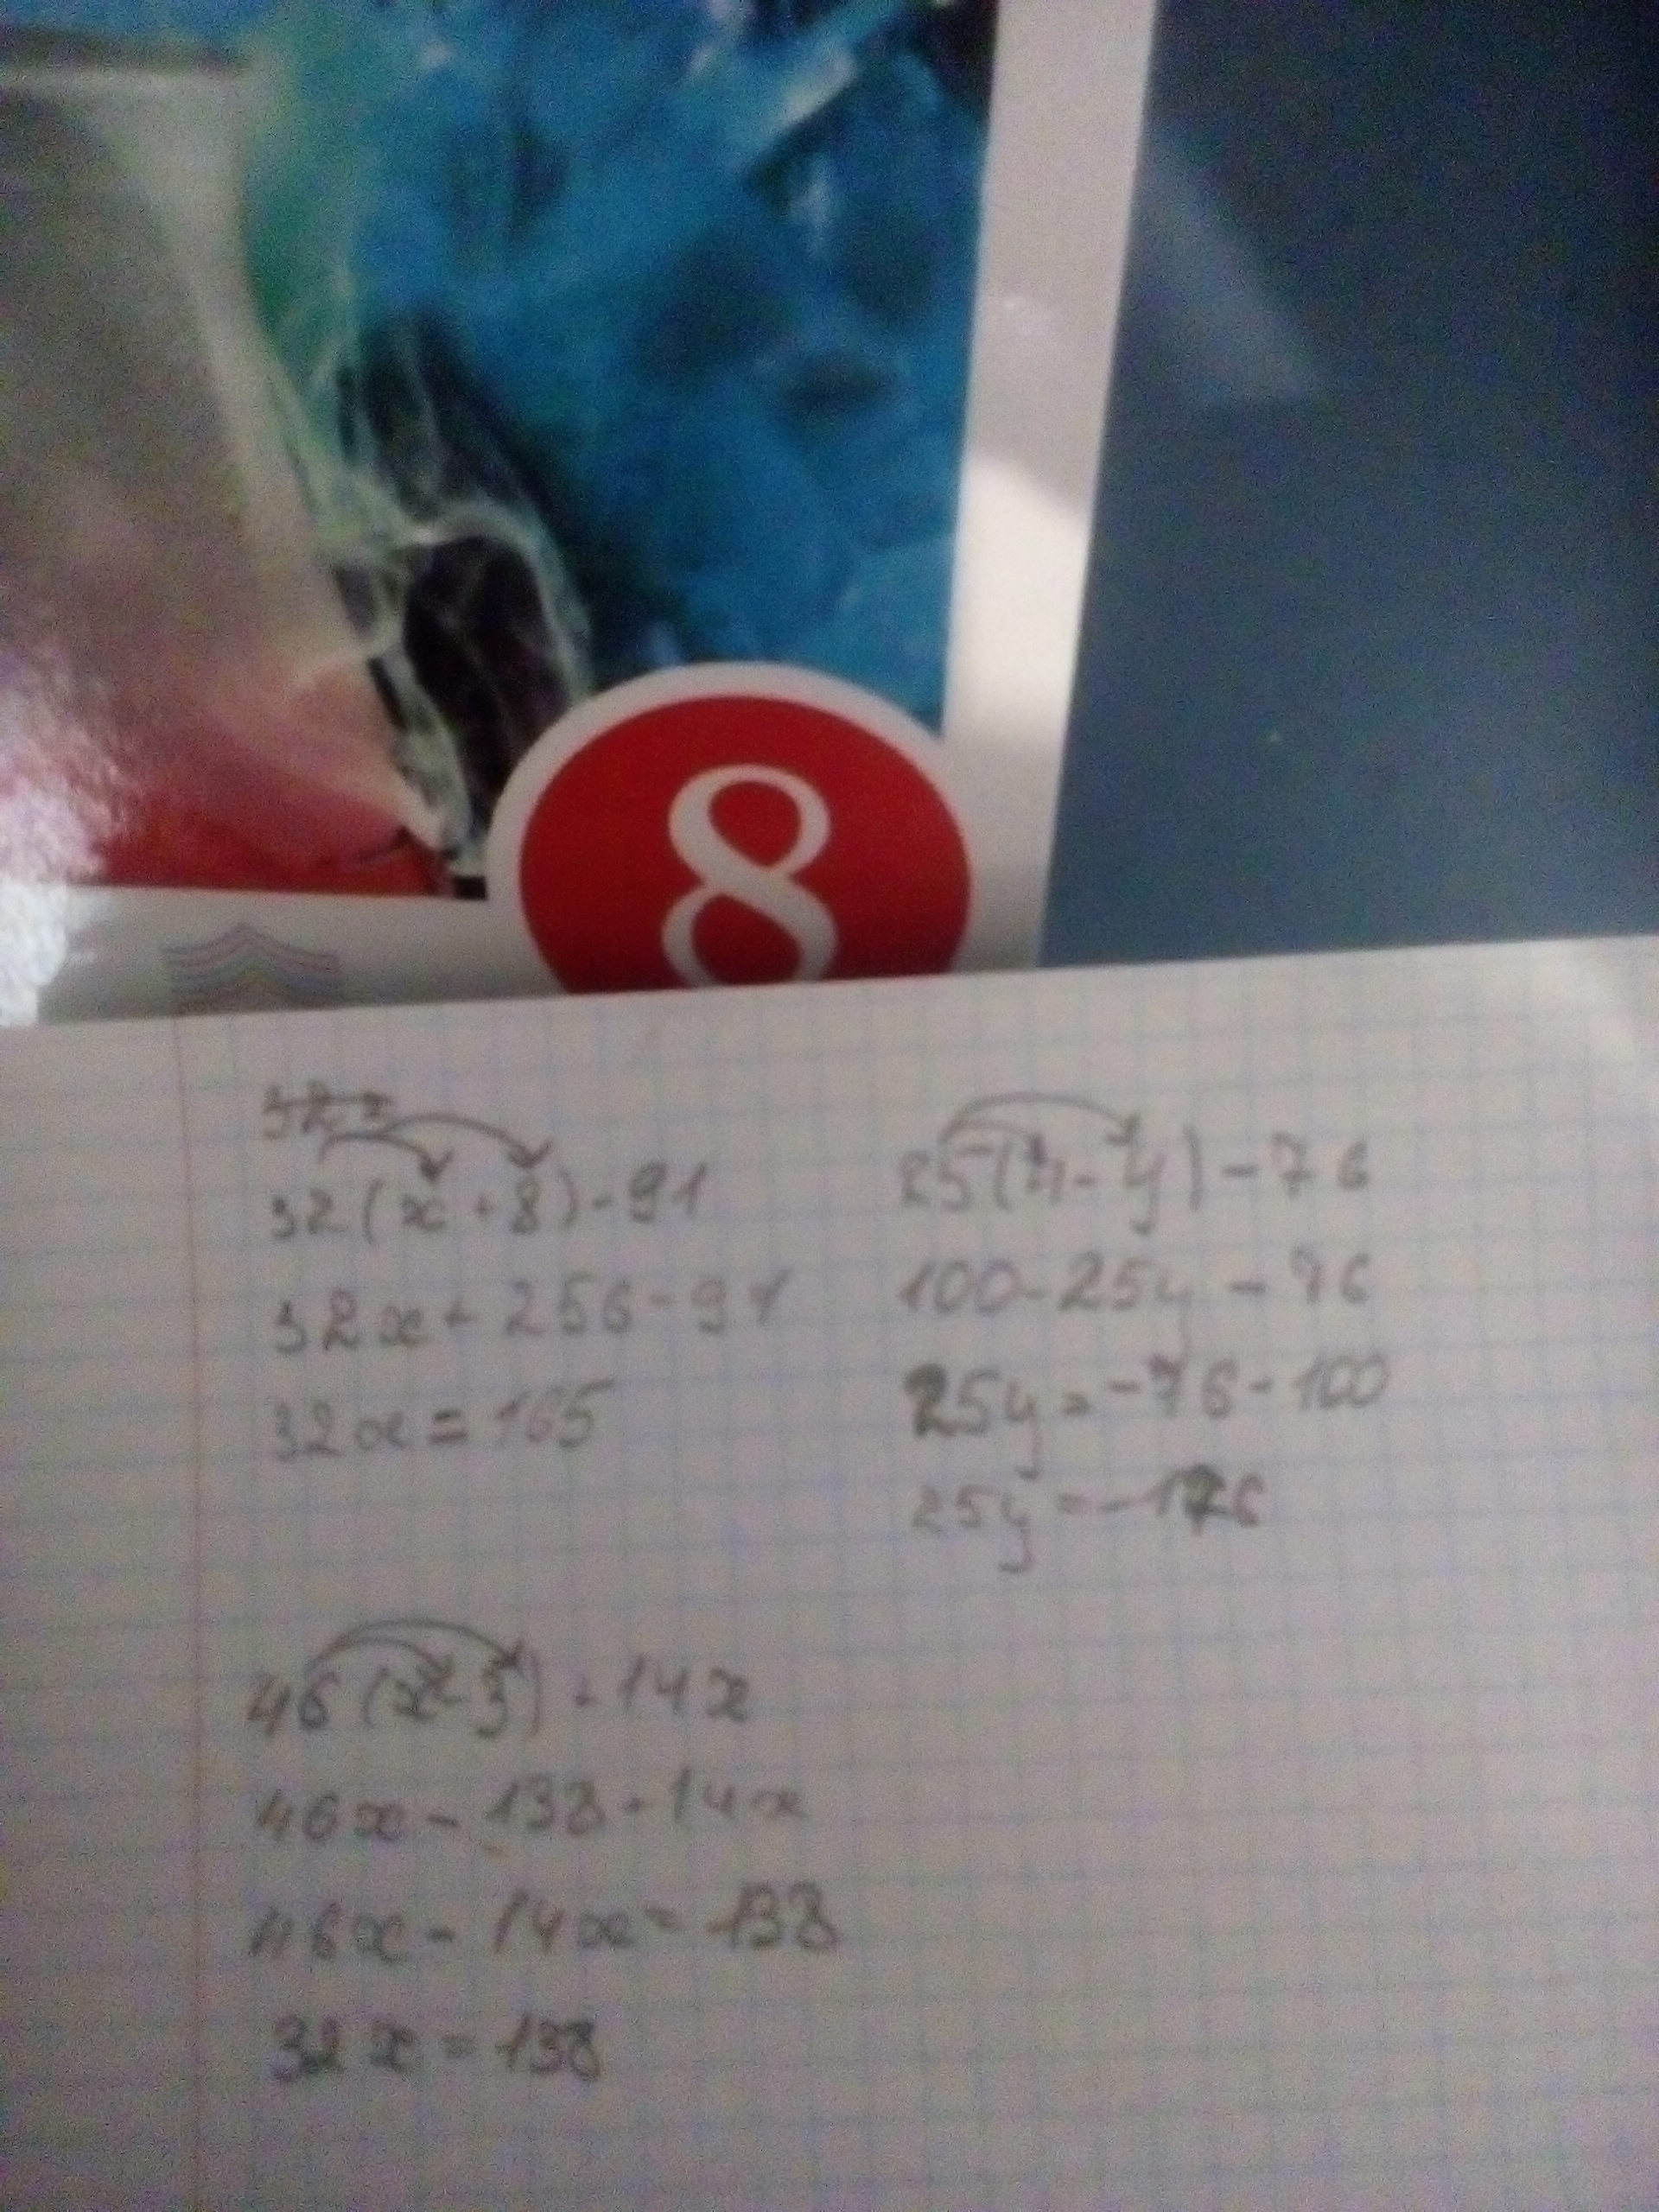 8
32(x+8)-91
32x+256-91
32x=165
25(4-y)-76
100-25y-76
25y=-76-100
25y=-176
46(x-3)+14x
46x-138+14x
46x-14x=138
32x=138